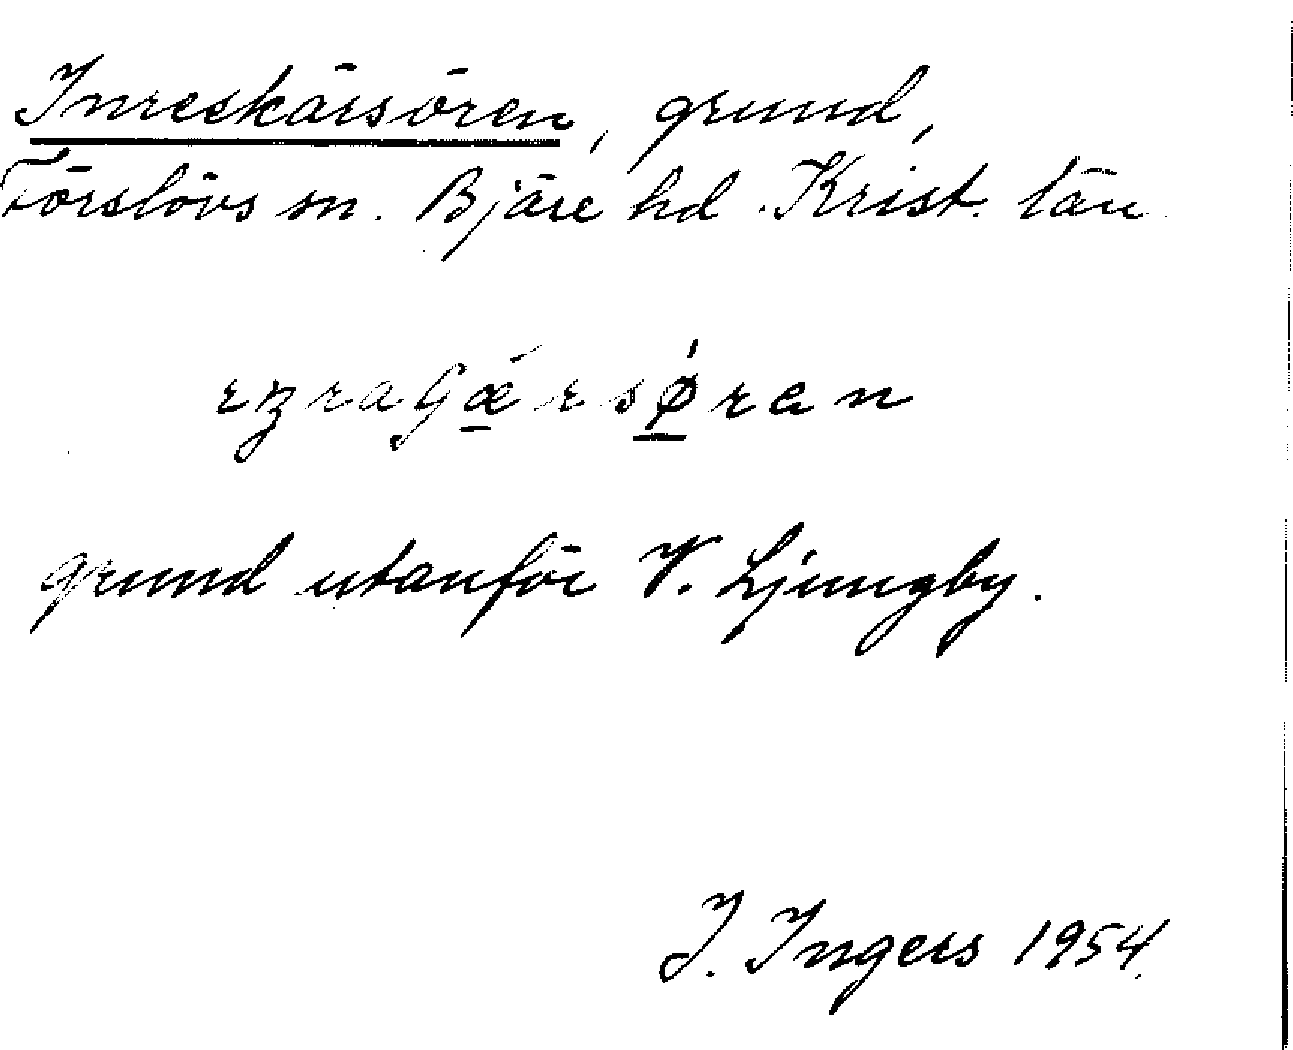 Inreskärsören, grund,
Förslövs sn. Bjäre hd. Krist. län
grund utanför V. Ljungby.
J. Ingers 1954.